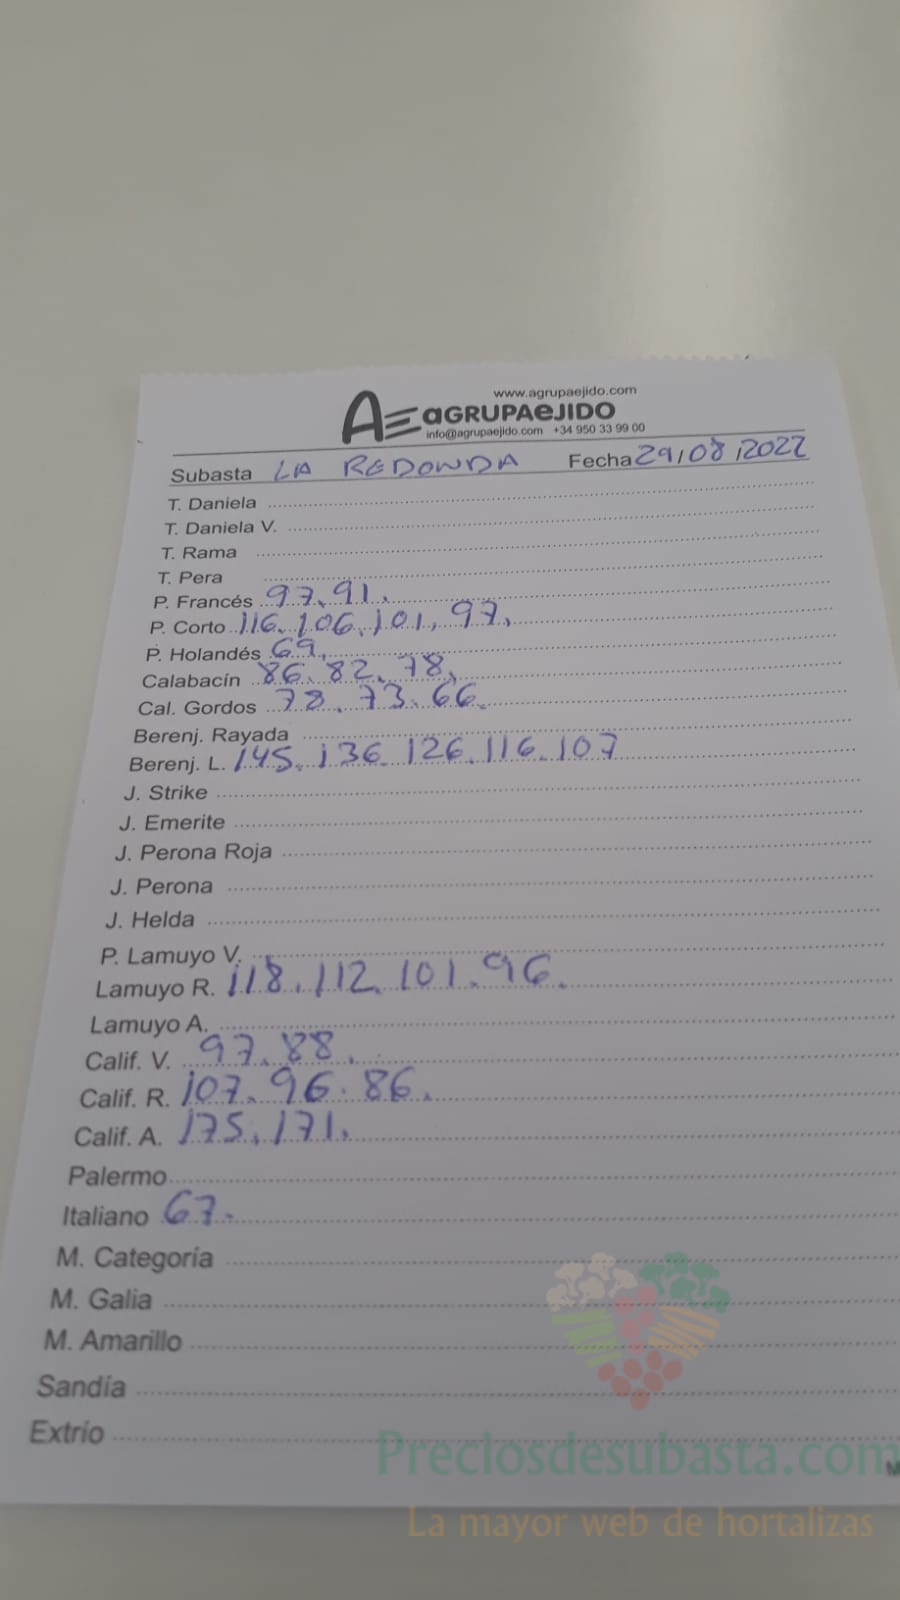 www.agrupaejido.com
AE AGRUPAEJIDO
info@agrupaejido.com +34 950 33 99 00
Subasta LA REDONDA Fecha 29/08/2022
T. Daniela
T. Daniela V.
T. Rama
T. Pera
P. Francés 97. 91.
P. Corto 116. 106. 101. 97.
P. Holandés 69.
Calabacín 86. 82. 78.
Cal. Gordos 78. 73. 66.
Berenj. Rayada
Berenj. L. 145. 136. 126. 116. 107
J. Strike
J. Emerite
J. Perona Roja
J. Perona
J. Helda
P. Lamuyo V.
Lamuyo R. 118. 112. 101. 96.
Lamuyo A.
Calif. V. 97. 88.
Calif. R. 107. 96. 86.
Calif. A. 175. 171.
Palermo
Italiano 67.
M. Categoría
M. Galia
M. Amarillo
Sandía
Extrío
Preciosdesubasta.com
La mayor web de hortalizas